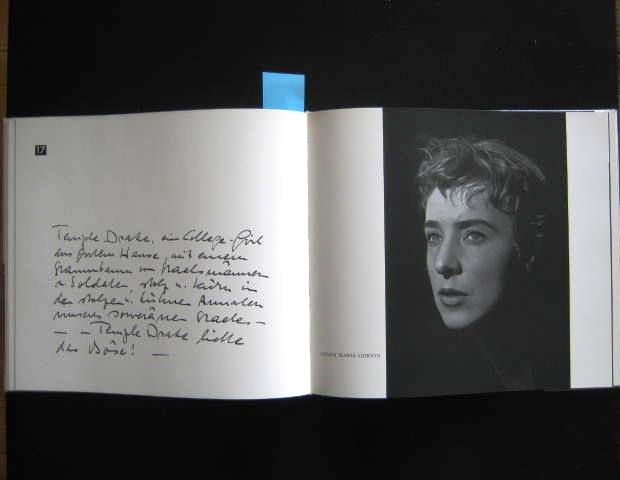 17
Temple Drake, ein College-Girl
aus gutem Hause, mit einem
Stammbaum von Staatsmännern
u. Soldaten, stolz u. kühn in
den stolzen u. kühnen Annalen
unseres souveränen Staates –
– – Temple Drake liebte
das Böse! –
DIANA MARIA GORVIN